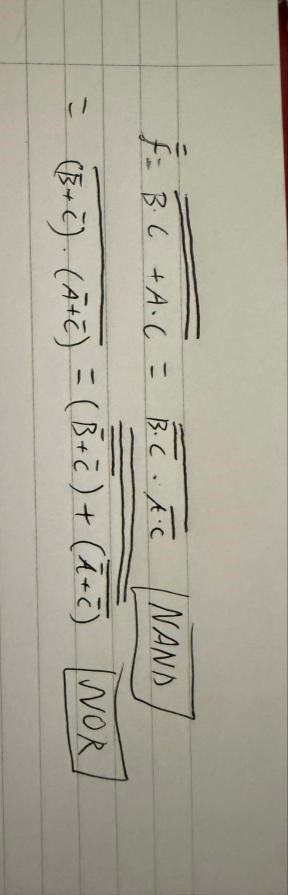 f̿ = B̿·̿C̿ ̿+̿ ̿A̿·̿C̿ = B̿·̿C̿ ̅·̅ ̅A̿·̿C̿ NAND
= (̅B̿+̅C̿)̅ ̅·̅ ̅(̅A̿+̅C̿)̅ = (B̄+C̄) + (Ā+C̄) NOR